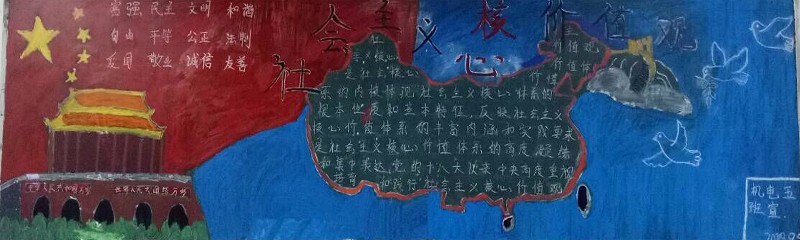 富强 民主 文明 和谐
自由 平等 公正 法制
爱国 敬业 诚信 友善
社会主义核心价值观
社
会核心
价值观
是社会核心
价值体
价值
系的内核体现社会主义核心体系的
根本性质和基本特征，反映社会主义
核心价值体系的丰富内涵和实践要求
是社会主义核心价值体系的高度凝练
和集中表达党的十八大以来中央高度重视
培育和践行社会主义核心价值观
中华人民共和国万岁
世界人民大团结万岁
机电五
班宣